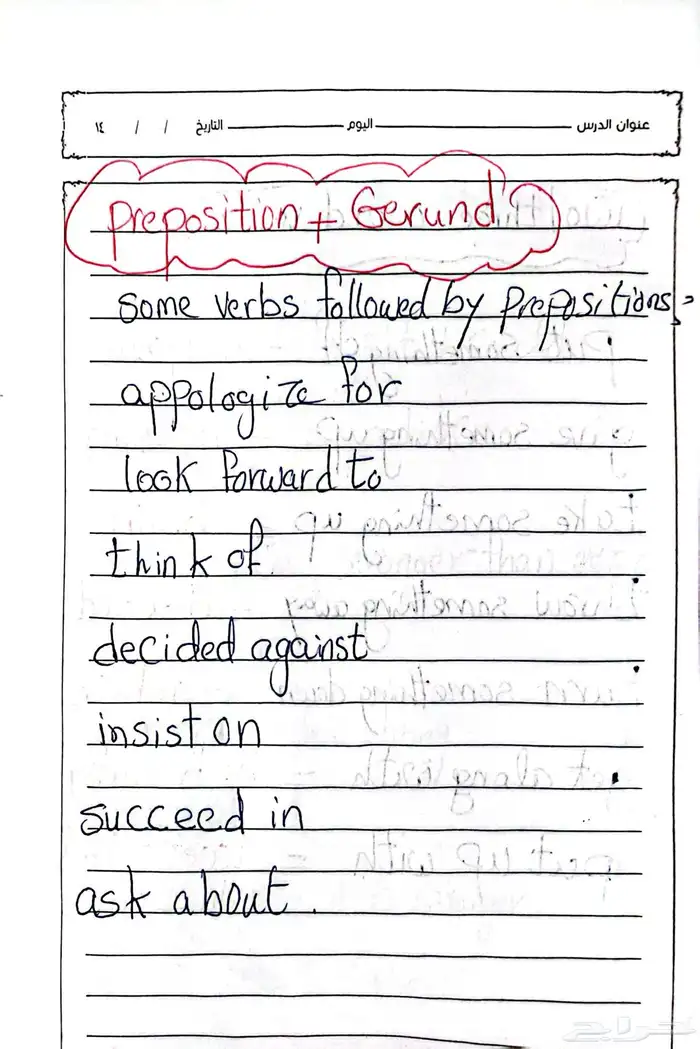 عنوان الدرس اليوم التاريخ / / ١٤
Preposition + Gerund
some verbs followed by Prepositions :
appologize for
look forward to
think of
decided against
insist on
succeed in
ask about .
حراج